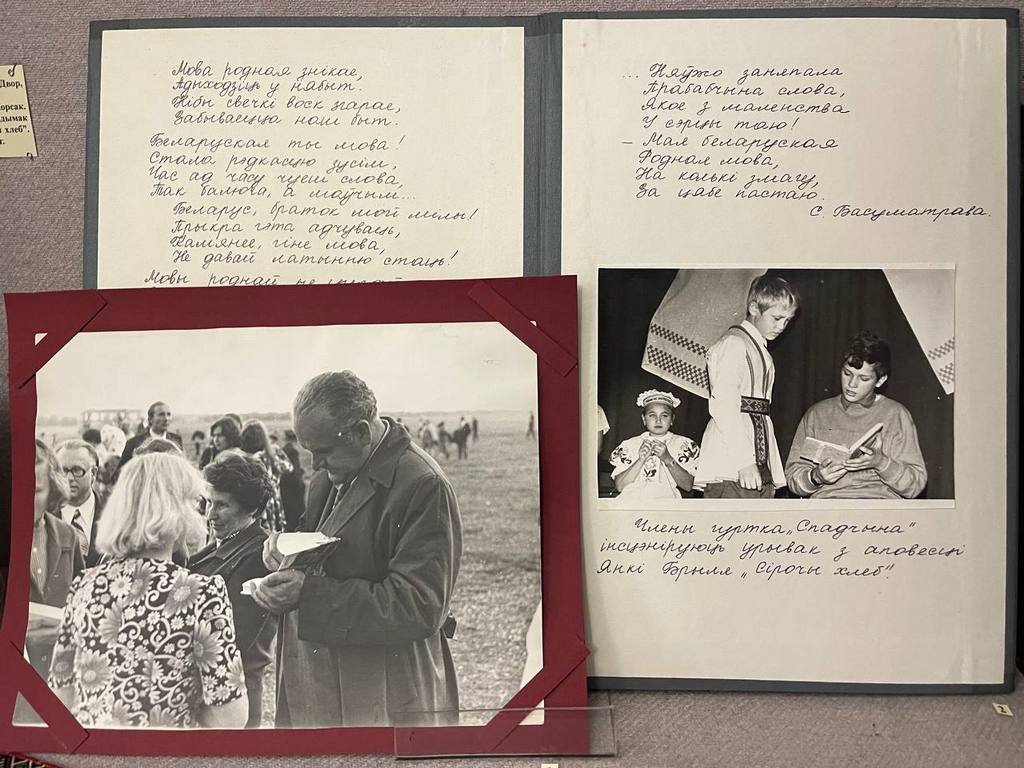 Двор,
орсак.
дымак
хлеб".
Мова родная знікае,
Адыходзіць у нябыт.
Нібы свечкі воск згарае,
Забываецца наш быт.
Беларуская ты мова!
Стала рэдкасцю зусім,
Час ад часу чуеш слова,
Так балюча, а маўчым...
Беларус, браток мой мілы!
Прыкра гэта адчуваць,
Камянее, гіне мова,
Не давай латынню стаць!
Мовы роднай не
... Няўжо заняпала
Прабабчына слова,
Якое з маленства
У сэрцы таю!
- Мая беларуская
Родная мова,
На колькі змагу,
За цябе пастаю.
С. Басуматрава.
Члены гуртка „Спадчына"
інсцэніруюць урывак з аповесці
Янкі Брыля „Сірочы хлеб".
2